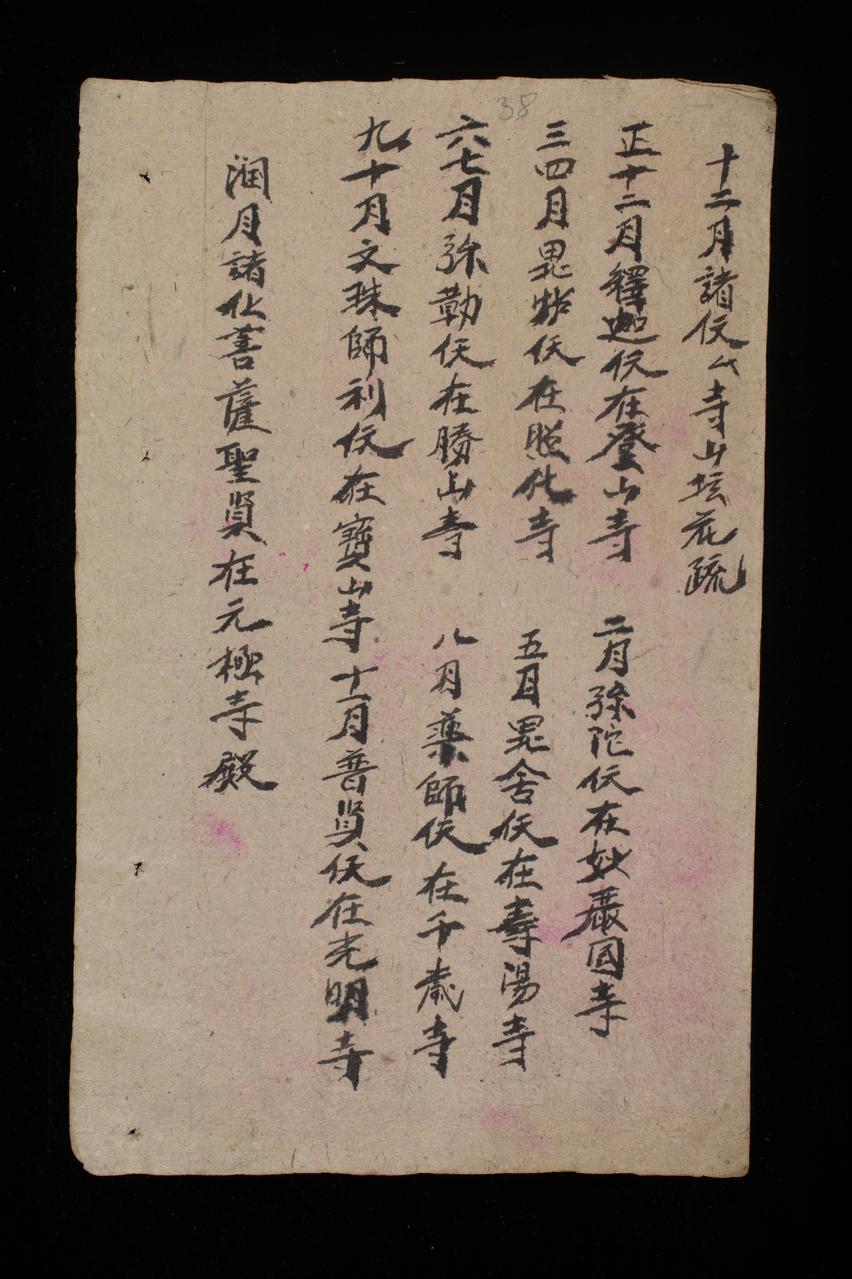 38
十二月諸仸厶寺山坛花疏
正十二月釋迦仸在登山寺 二月弥陀仸在妙嚴囯寺
三四月毘仸在照化寺 五月毘舍仸在壽湯寺
六七月弥勒仸在勝山寺 八月藥師仸在千歲寺
九十月文珠師利仸在寶山寺 十一月普賢仸在光明寺
润月諸仏菩薩聖賢在元極寺殿